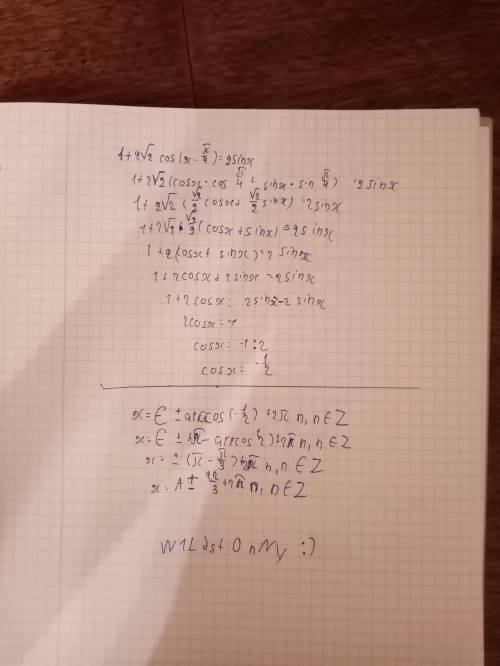 1+2√2 cos(x-π/4)=2sinx
1+2√2(cosx·cos π/4 + sinx·sin π/4) =2sinx
1+2√2 (√2/2 cosx+ √2/2 sinx)=2sinx
1+2√2·√2/2(cosx+sinx)=2sinx
1+2(cosx+ sinx)=2 sinx
1+2cosx+2sinx=2sinx
1+2cosx= 2sinx-2 sinx
2cosx=-1
cosx= -1:2
cosx= -1/2
x= ± arccos(-1/2)+2π n, n∈Z
x= ± π- arccos 1/2)+2π n, n∈Z
x= ± (π - π/3)+2π n, n ∈ Z
x= ± 2π/3 +2π n, n ∈ Z
W1Ldst0nNy :)